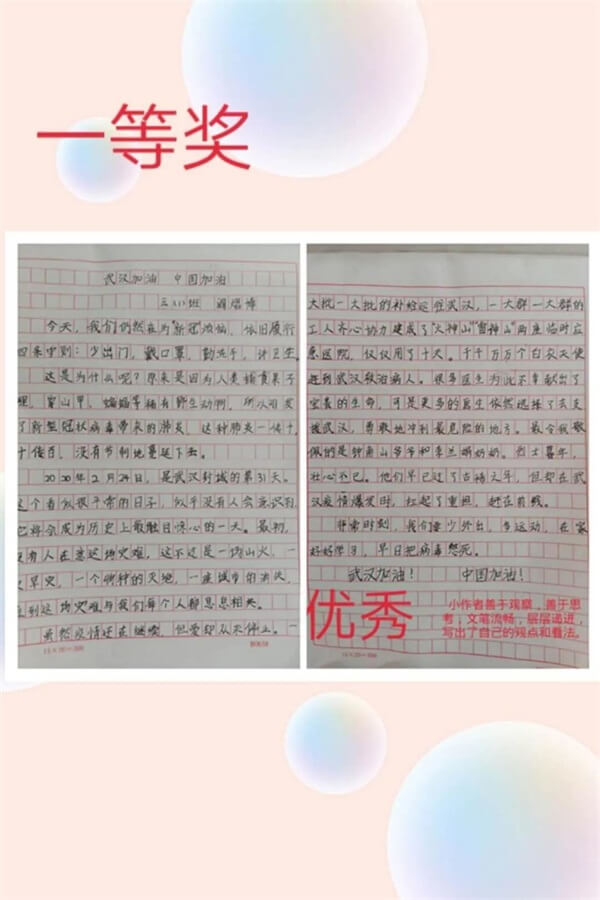 一等奖
武汉加油 中国加油
班
今天，我们仍然在为"新冠"烦恼，依旧履行
四条守则：少出门，戴口罩，勤洗手，讲卫生。
这是为什么呢？原来是因为人类捕食果子
狸、穿山甲、蝙蝠等稀有野生动物，所以引发
了新型冠状病毒带来的肺炎，这种肺炎一传十，
十传百，没有节制地蔓延下去。
2020年2月24日，是武汉封城的第31天。
这个看似很平常的日子，似乎没有人会意识到
它将会成为历史上最触目惊心的一天。最初，
没有人在意这场灾难，这不过是一场山火，一
次旱灾，一个物种的灭绝，一座城市的消失，
直到这场灾难与我们每个人都息息相关。
虽然疫情还在继续，但爱却从不停止。一
大批一大批的补给运往武汉，一大群一大群的
工人齐心协力建成了"火神山""雷神山"两座临时应
急医院，仅仅用了十天。千千万万个白衣天使
赶到武汉救治病人。很多医生为此不幸献出了
宝贵的生命，可是更多的医生依然选择了去支
援武汉，勇敢地冲到最危险的地方。最令我敬
佩的是钟南山爷爷和李兰娟奶奶。烈士暮年，
壮心不已。他们早已过了古稀之年，但却在武
汉疫情爆发时，扛起了重担，赶在前线。
非常时刻，我们要少外出，多运动，在家
好好学习，早日把病毒憋死。
武汉加油！ 中国加油！
优秀
小作者善于观察，善于思
考，文笔流畅，层层递进，
写出了自己的观点和看法。